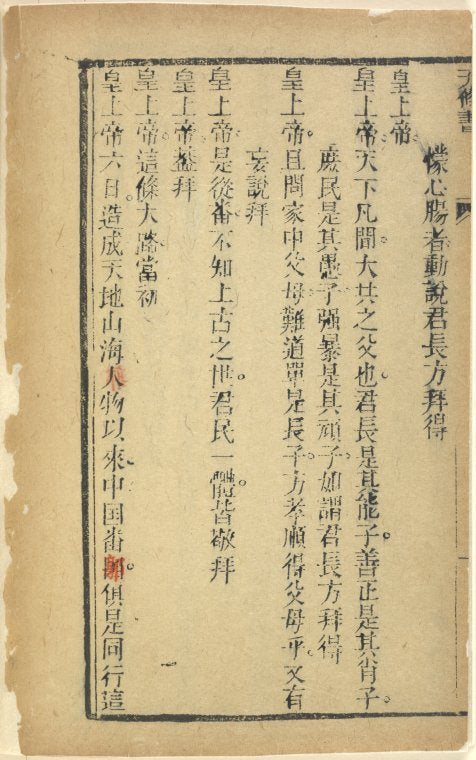 天條書
懞心腸者動說君長方拜得
皇上帝
皇上帝天下凡間大共之父也君長是其能子。善正是其肖子。
庶民是其愚子强暴是其頑子。如謂君長方拜得
皇上帝。且問家中父母難道單是長子方孝順得父母乎。又有
妄說拜
皇上帝是從番不知上古之世。君民一體。皆敬拜
皇上帝葢拜
皇上帝這條大路當初
皇上帝六日。造成天地山海人物以來中国番。俱是同行這